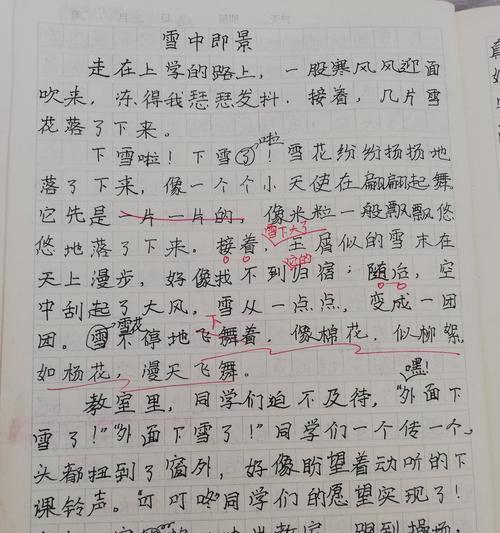 雪中即景
走在上学的路上，一股寒风风迎面
吹来，冻得我瑟瑟发抖．接着，几片雪
花落了下来。
啦
下雪啦！下雪了！雪花纷纷扬扬地
落了下来，像一个个小天使在翩翩起舞。
它先是一片一片的，像米粒一般飘飘悠
雪下大了
悠地落了下来．接着，玉屑似的雪末在
天上漫步，好像找不到归宿；随后，空
中刮起了大风，雪从一点点，变成一团
下
雪花
团。雪不停地飞舞着，像棉花，似柳絮，
如杨花，漫天飞舞。
嘿！
教室里，同学们迫不及待，“外面下
雪了！”“外面下雪了！”同学们一个传一个，
头都扭到了窗外，好像盼望着动听的下
课铃声。“叮叮咚”同学们的愿望实现了！
教室，跑到操场，